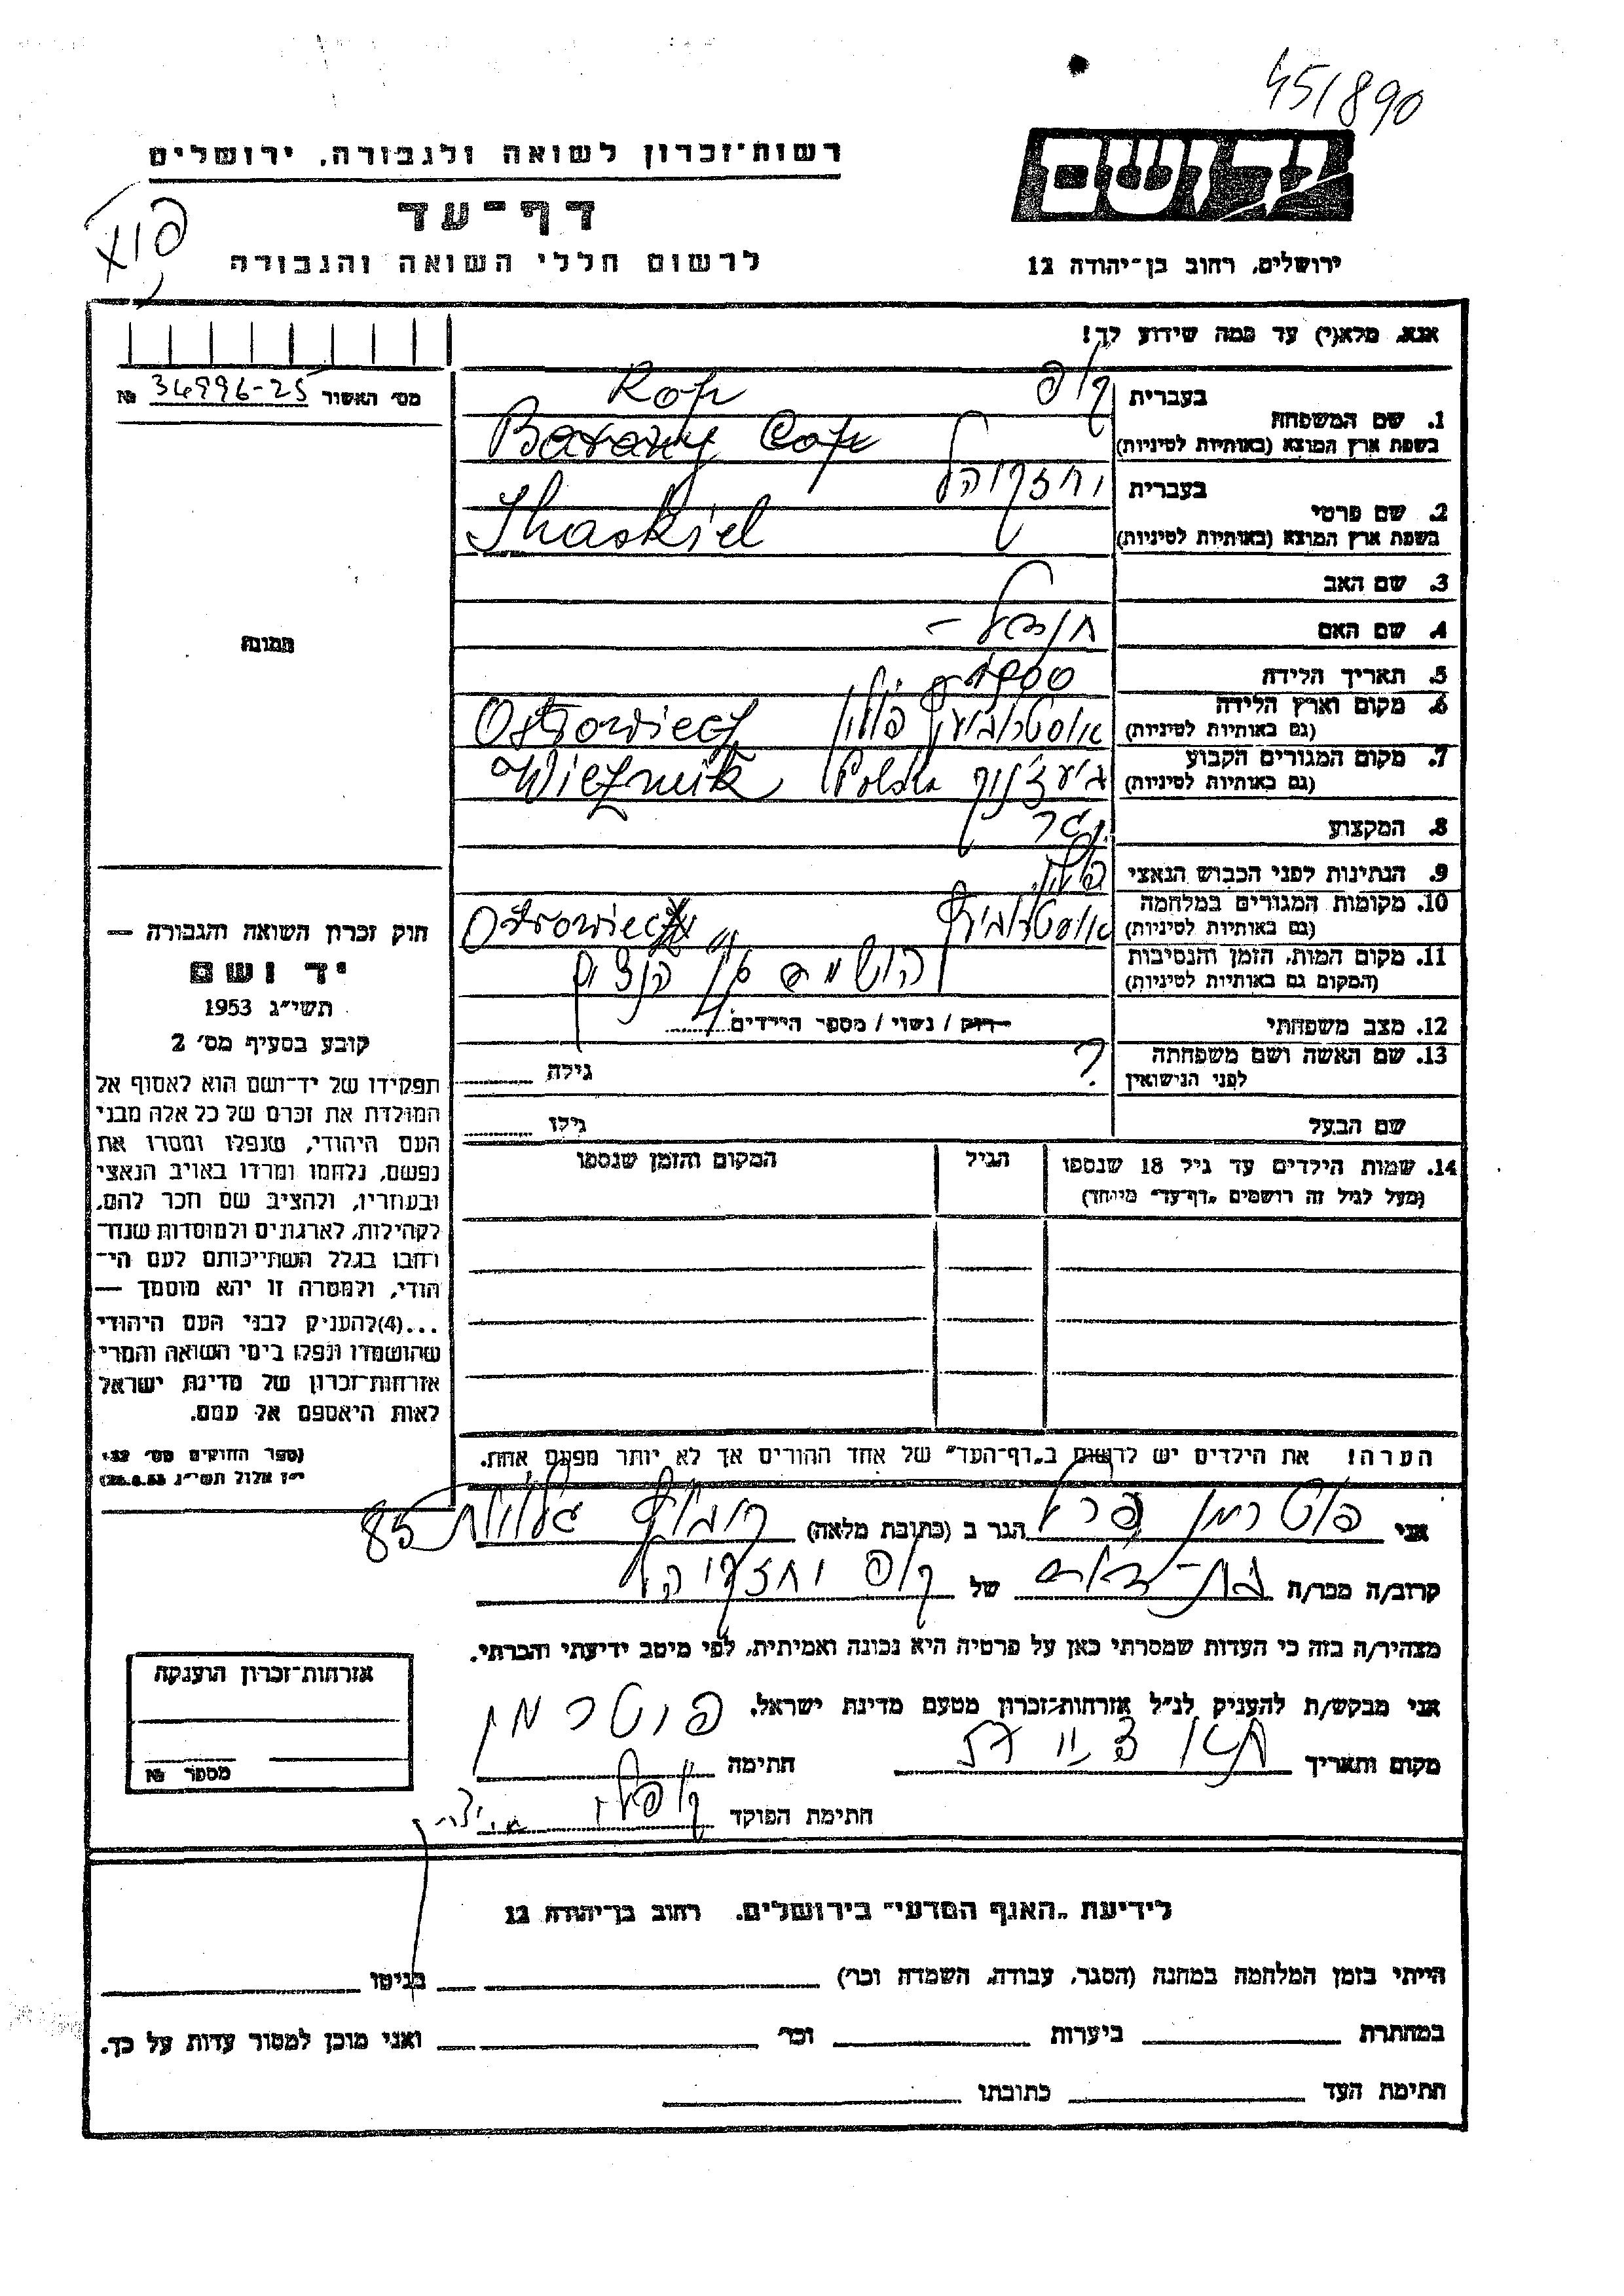 45/890
יד ושם
רשות־זכרון לשואה ולגבורה, ירושלים
דף־עד
לרשום חללי השואה והגבורה
ירושלים, רחוב בן־יהודה 12
אנא, מלא(י) עד כמה שידוע לך!
מס׳ האשור № 34996-25
1. שם המשפחה
בעברית קופ Kop
בשפת ארץ המוצא (באותיות לטיניות)
2. שם פרטי
בעברית יחזקיהל
בשפת ארץ המוצא (באותיות לטיניות) Ihaskiel
3. שם האב
4. שם האם
5. תאריך הלידה 1900
6. מקום וארץ הלידה
(גם באותיות לטיניות) פולין Ostrowiecz
7. מקום המגורים הקבוע
(גם באותיות לטיניות) Polska Wieznik
8. המקצוע
9. הנתינות לפני הכבוש הנאצי
10. מקומות המגורים במלחמה
(גם באותיות לטיניות)
11. מקום המות, הזמן והנסיבות
(המקום גם באותיות לטיניות) הושמד
12. מצב משפחתי רוק / נשוי / מספר הילדים 4
13. שם האשה ושם משפחתה
לפני הנישואין ? גילה
שם הבעל גילו
14. שמות הילדים עד גיל 18 שנספו
(מעל לגיל זה רושמים „דף־עד״ מיוחד)
הגיל
המקום והזמן שנספו
הערה! את הילדים יש לרשום ב„דף־העד״ של אחד ההורים אך לא יותר מפעם אחת.
תמונה
חוק זכרון השואה והגבורה —
יד ושם
תשי״ג 1953
קובע בסעיף מס׳ 2
תפקידו של יד־ושם הוא לאסוף אל
המולדת את זכרם של כל אלה מבני
העם היהודי, שנפלו ומסרו את
נפשם, נלחמו ומרדו באויב הנאצי
ובעוזריו, ולהציב שם וזכר להם,
לקהילות, לארגונים ולמוסדות שנח־
רחבו בגלל השתייכותם לעם הי־
הודי, ולמטרה זו יהא מוסמך —
...(4)להעניק לבני העם היהודי
שהושמדו ונפלו בימי השואה והמרי
אזרחות־זכרון של מדינת ישראל
לאות היאספם אל עמם.
(ספר החוקים מס׳ 132,
י״ז אלול תשי״ג 28.8.53)
אני פוטרמן הגר ב (כתובת מלאה) קבוץ גלויות 85
קרוב/ה מכר/ה בת-דוד של קופ יחזקיהל
מצהיר/ה בזה כי העדות שמסרתי כאן על פרטיה היא נכונה ואמיתית, לפי מיטב ידיעתי והכרתי.
אני מבקש/ת להעניק לנ״ל אזרחות־זכרון מטעם מדינת ישראל.
מקום ותאריך חתימה פוטרמן
חתימת הפוקד
אזרחות־זכרון הוענקה
מספר №
לידיעת „האגף המדעי״ בירושלים, רחוב בן־יהודה 12
הייתי בזמן המלחמה במחנה (הסגר, עבודה, השמדה וכו׳) בגיטו
במחתרת ביערות וכו׳ ואני מוכן למסור עדות על כך.
חתימת העד כתובתו